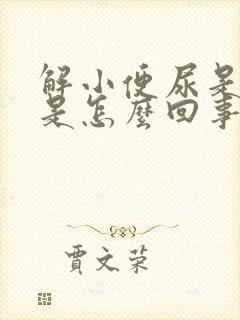 解小便尿是
是怎麼回事
賈文荣